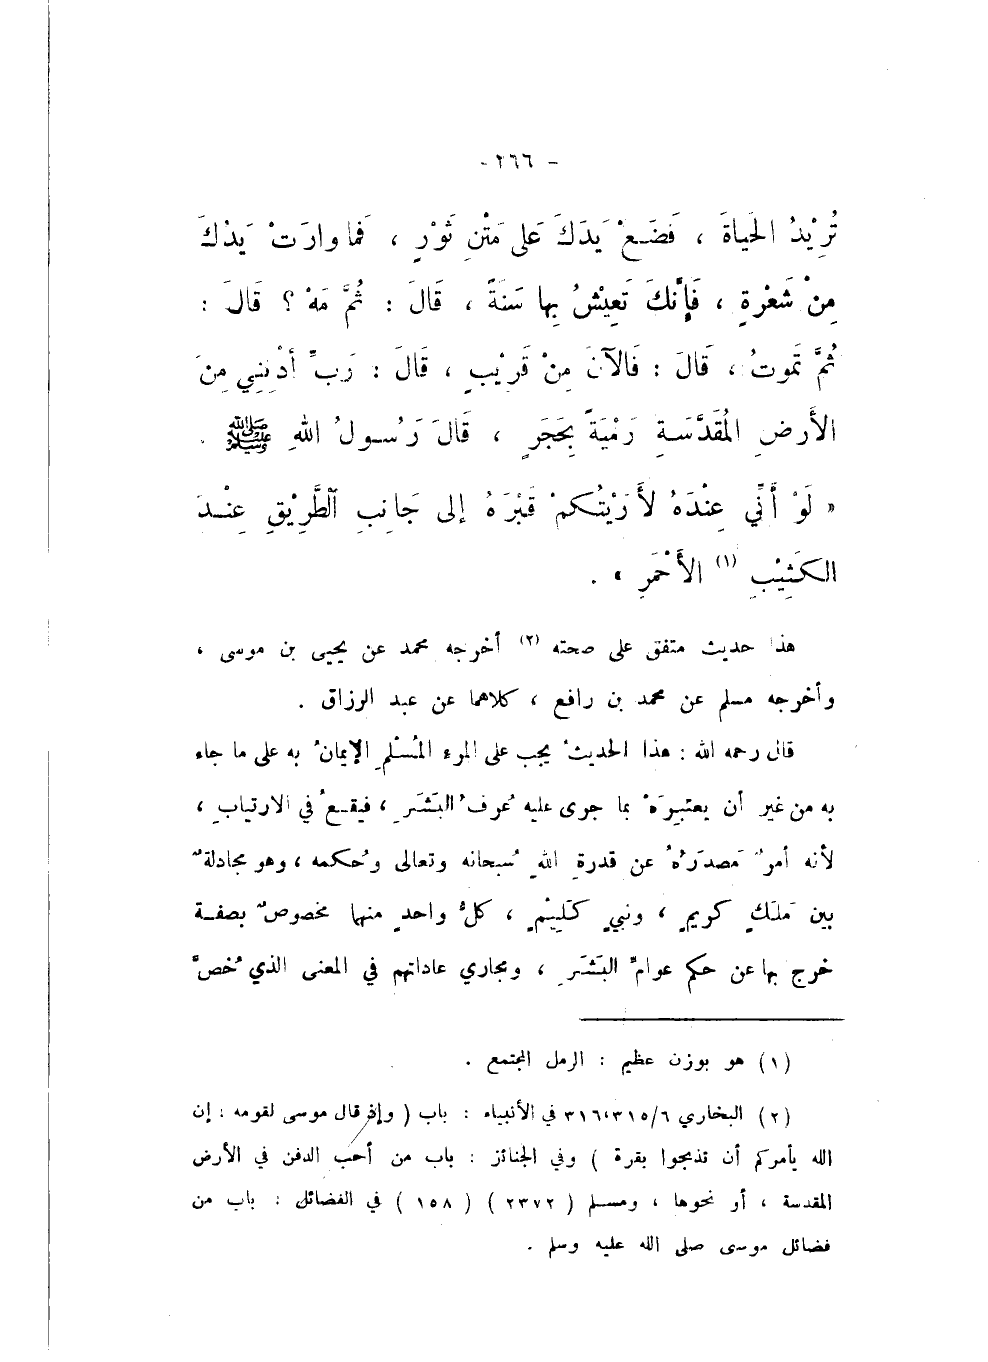 - ٢٦٦ -
تُرِيْدُ الحَياةَ ، فَضَعْ يَدَكَ عَلى مَتْنِ ثَوْرٍ ، فَما وارَتْ يَدُكَ
مِنْ شَعْرَةٍ ، فَإِنَّكَ تَعِيْشُ بِها سَنَةً ، قَالَ : ثُمَّ مَهْ ؟ قَالَ :
ثُمَّ تَموتُ ، قَالَ : فَالآنَ مِنْ قَرِيْبٍ ، قَالَ : رَبِّ أدْنِنِي مِنَ
الأَرضِ المُقَدَّسَةِ رَمْيَةً بِحَجَرٍ ، قَالَ رَسُولُ اللهِ ﷺ .
« لَوْ أَنِّي عِنْدَهُ لأَرَيْتُكمْ قَبْرَهُ إلى جَانِبِ الطَّرِيْقِ عِنْدَ
الكَثِيْبِ (١) الأَحْمَرِ » .
هذا حديث متفق على صحته (٢) أخرجه محمد عن يحيى بن موسى ،
وأخرجه مسلم عن محمد بن رافع ، كلاهما عن عبد الرزاق .
قال رحمه الله : هذا الحديثُ يجب على المرء المُسْلمِ الإيمانُ به على ما جاء
به من غير أن يعتبِرَهُ بما جرى عليه عُرفُ البَشَرِ ، فيقعُ في الارتيابِ ،
لأنه أمرٌ مَصدَرُهُ عن قدرةِ اللهِ سُبحانه وتعالى وحُكمه ، وهو مجادلةٌ
بين مَلَكٍ كريمٍ ، ونبيٍ كَلِيْمٍ ، كلُّ واحدٍ منهما مخصوصٌ بصفة
خرج بها عن حكم عوامِّ البَشَرِ ، ومجاري عاداتهم في المعنى الذي خُصَّ
(١) هو بوزن عظيم : الرمل المجتمع .
(٢) البخاري ٣١٥/٦،٣١٦ في الأنبياء : باب ( وإذ قال موسى لقومه : إن
الله يأمركم أن تذبحوا بقرة ) وفي الجنائز : باب من أحب الدفن في الأرض
المقدسة ، أو نحوها ، ومسلم ( ٢٣٧٢ ) ( ١٥٨ ) في الفضائل : باب من
فضائل موسى صلى الله عليه وسلم .